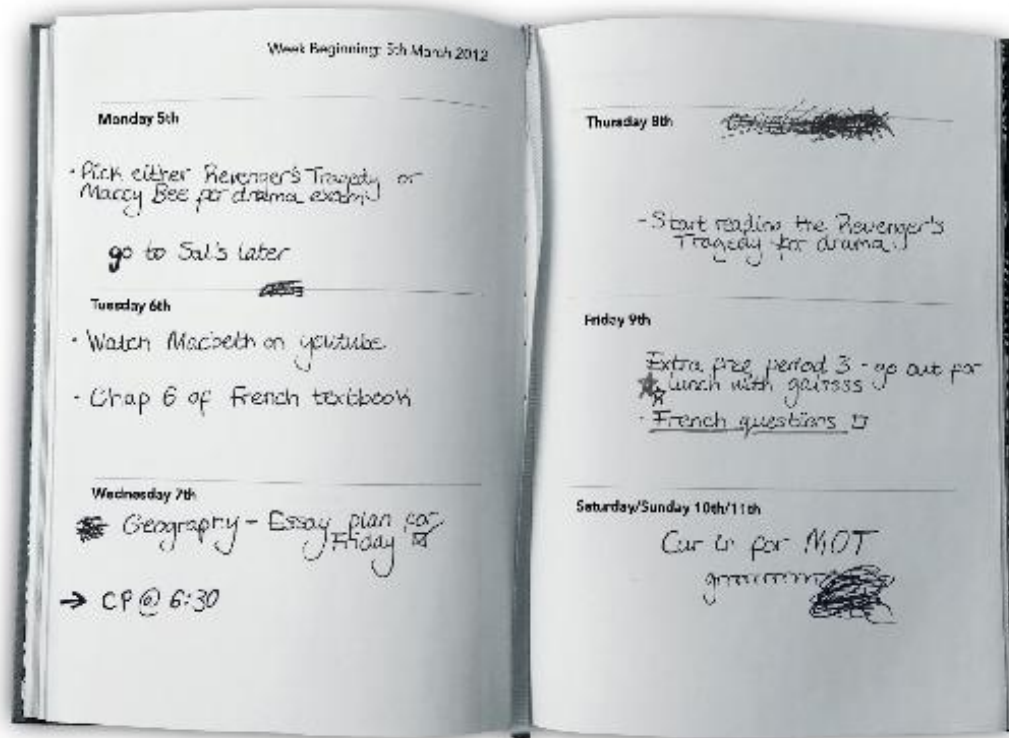 Week Beginning: 5th March 2012
Monday 5th
· Pick either Revenger's Tragedy or
Marcy Bee for drama exam
go to Sal's later
Tuesday 6th
· Watch Macbeth on youtube
· Chap 6 of French textbook
Wednesday 7th
Geography - Essay plan for
Friday ☑
→ CP @ 6:30
Thursday 8th
- Start reading the Revenger's
Tragedy for drama
Friday 9th
Extra free period 3 - go out for
lunch with galssss
· French questions □
Saturday/Sunday 10th/11th
Car in for MOT
grrrrrrrrr